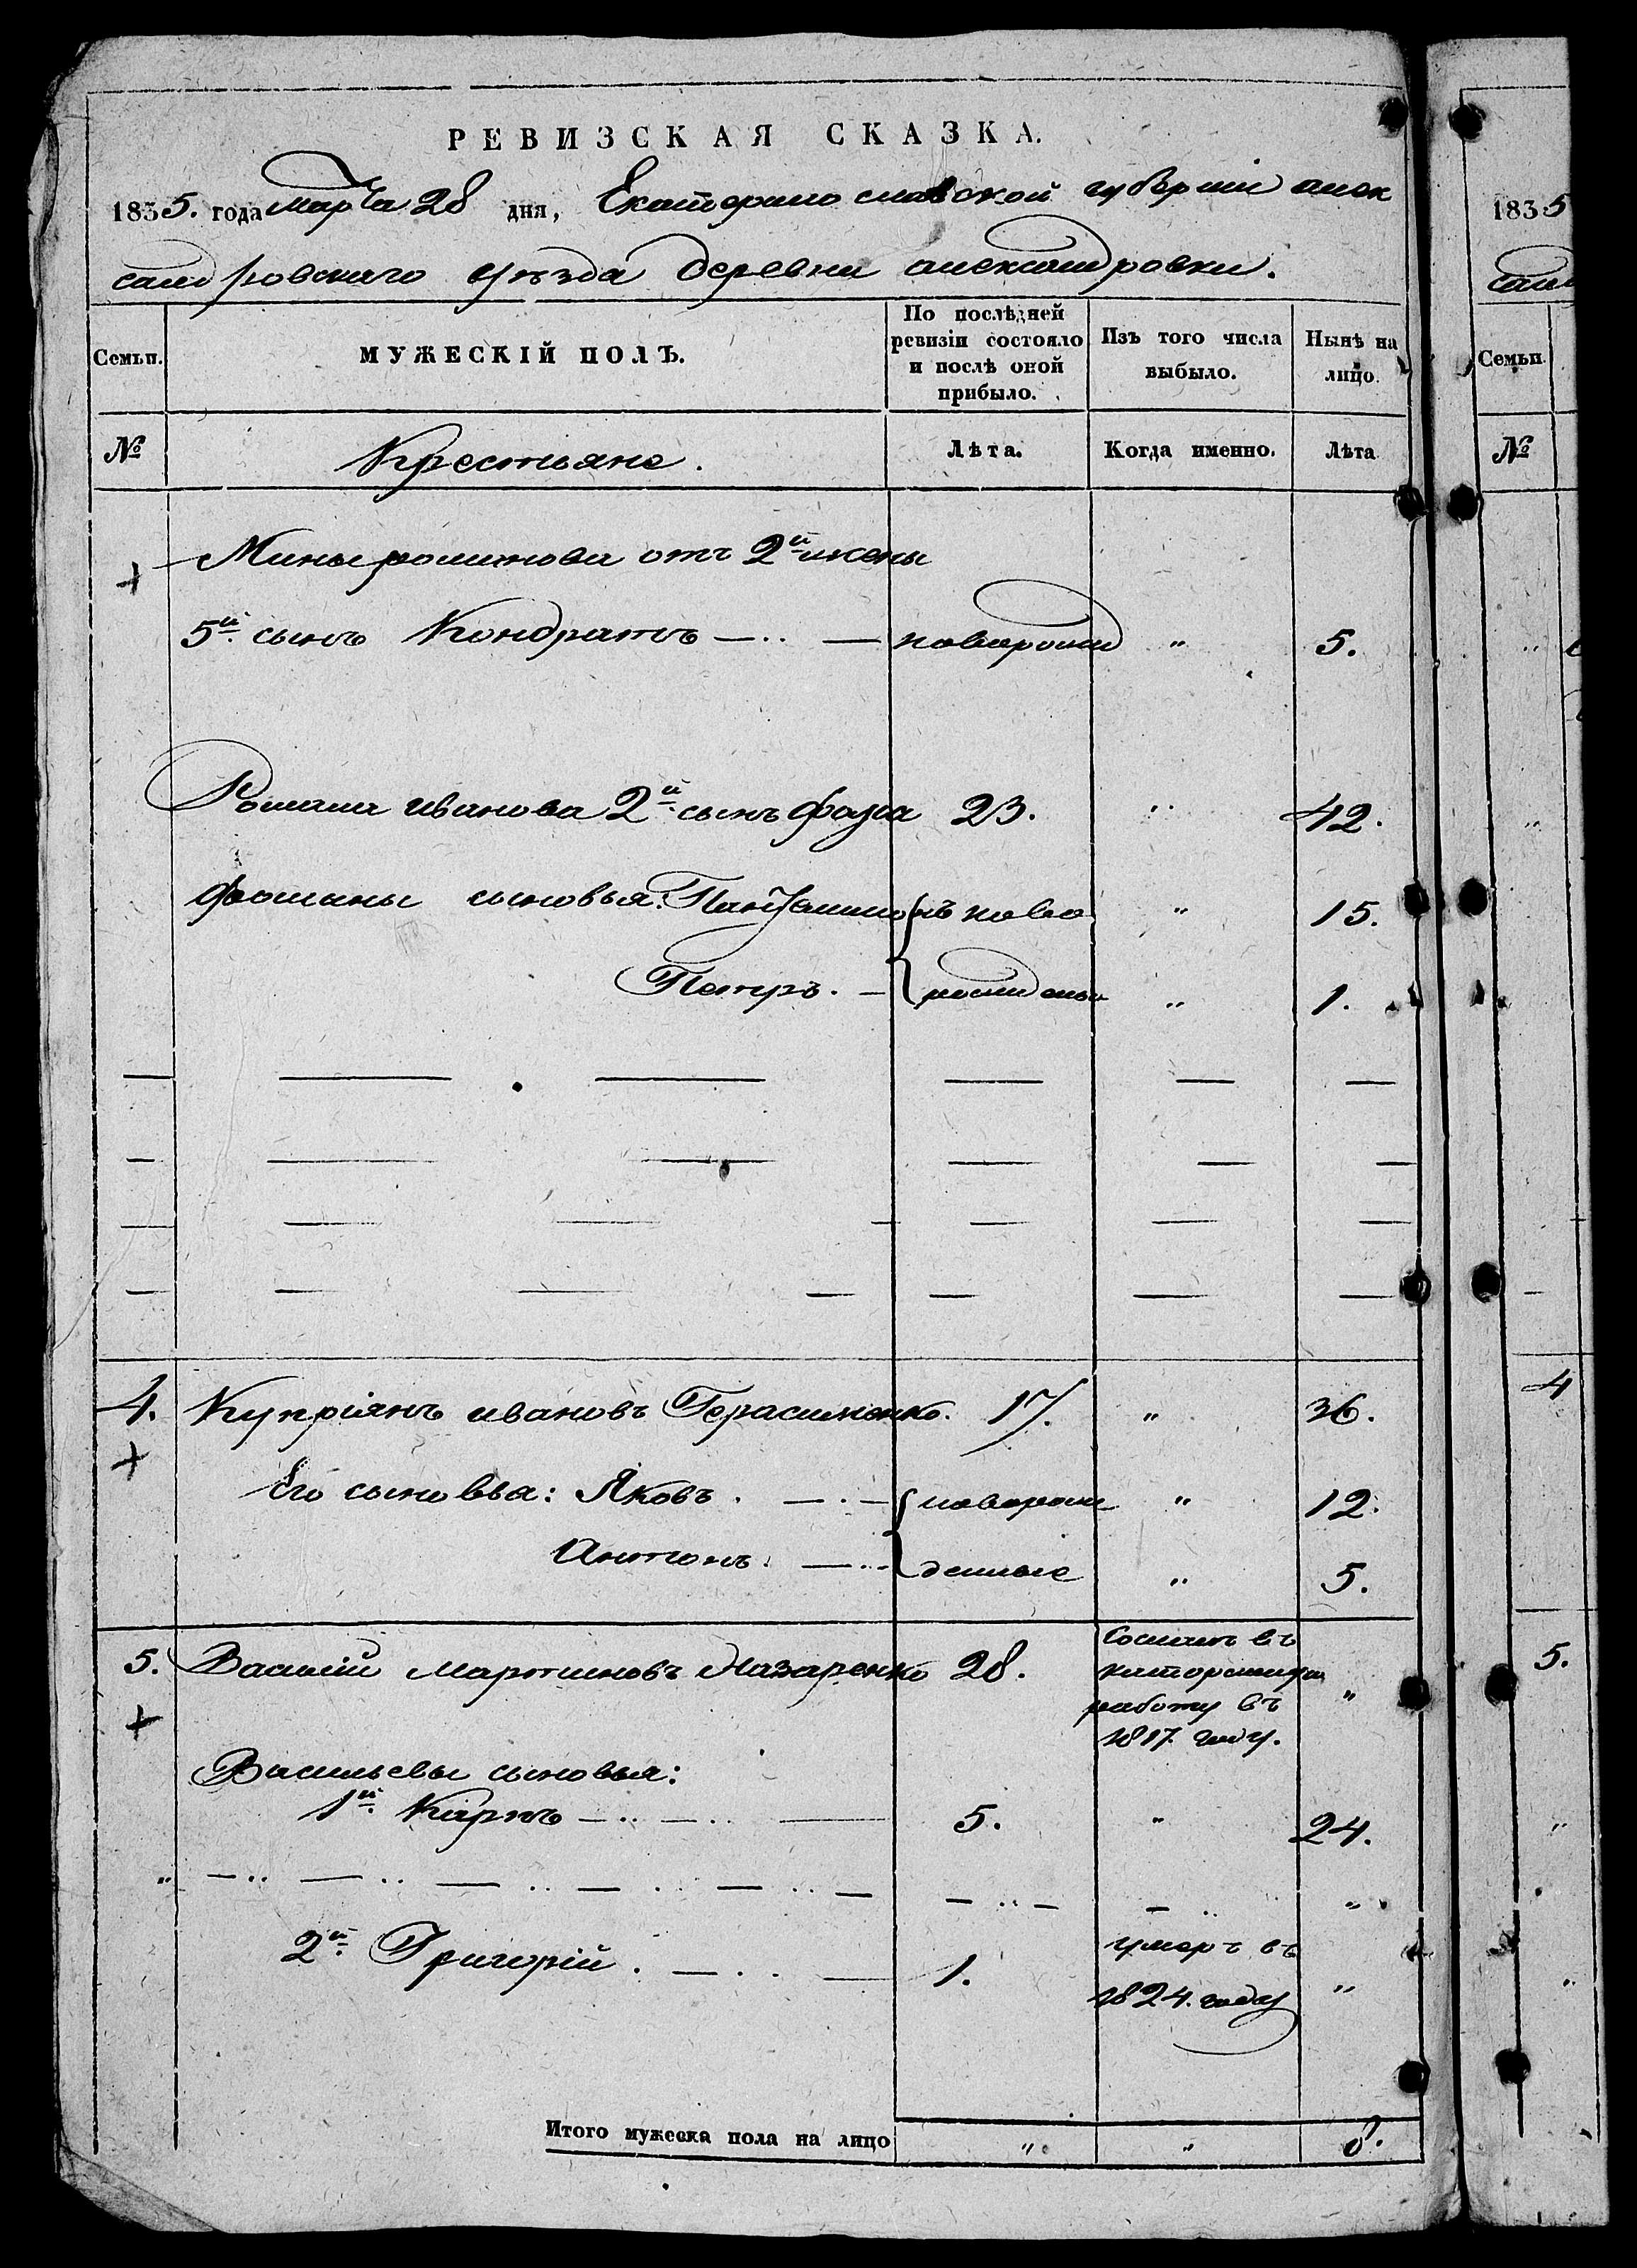 РЕВИЗСКАЯ СКАЗКА.
1835. года Марта 28 дня, Екатеринославской губерніи алек
сандровскаго уѣзда деревни александровки.
Семьи.
МУЖЕСКІЙ ПОЛЪ.
По послѣдней ревизіи состояло и послѣ оной прибыло.
Изъ того числа выбыло.
Нынѣ на лицо.
№
Крестьяне.
Лѣта.
Когда именно.
Лѣта
Мины романова отъ 2й жены
5й сынъ Кондратъ — .. — новорожд " 5.
Романа иванова 2й сынъ фома 23. " 42.
фомины сыновья: Пантелимонъ ново " 15.
Петръ. — рожденые " 1.
4. Купріянъ ивановъ Герасименко. 17. " 36.
Его сыновья: Яковъ. — . — новорож " 12.
Антонъ. — .. денные " 5.
5. Василій Мартиновъ Назаренко 28. Сосланъ въ
каторжную
работу въ "
1817. году.
Васильевы сыновья:
1й Карпъ — .. — .. — 5. " 24.
2й Григорій. — . . — 1. умеръ въ
1824. году "
Итого мужеска пола на лицо " " 8.
1835
Семьи
№
4
5.